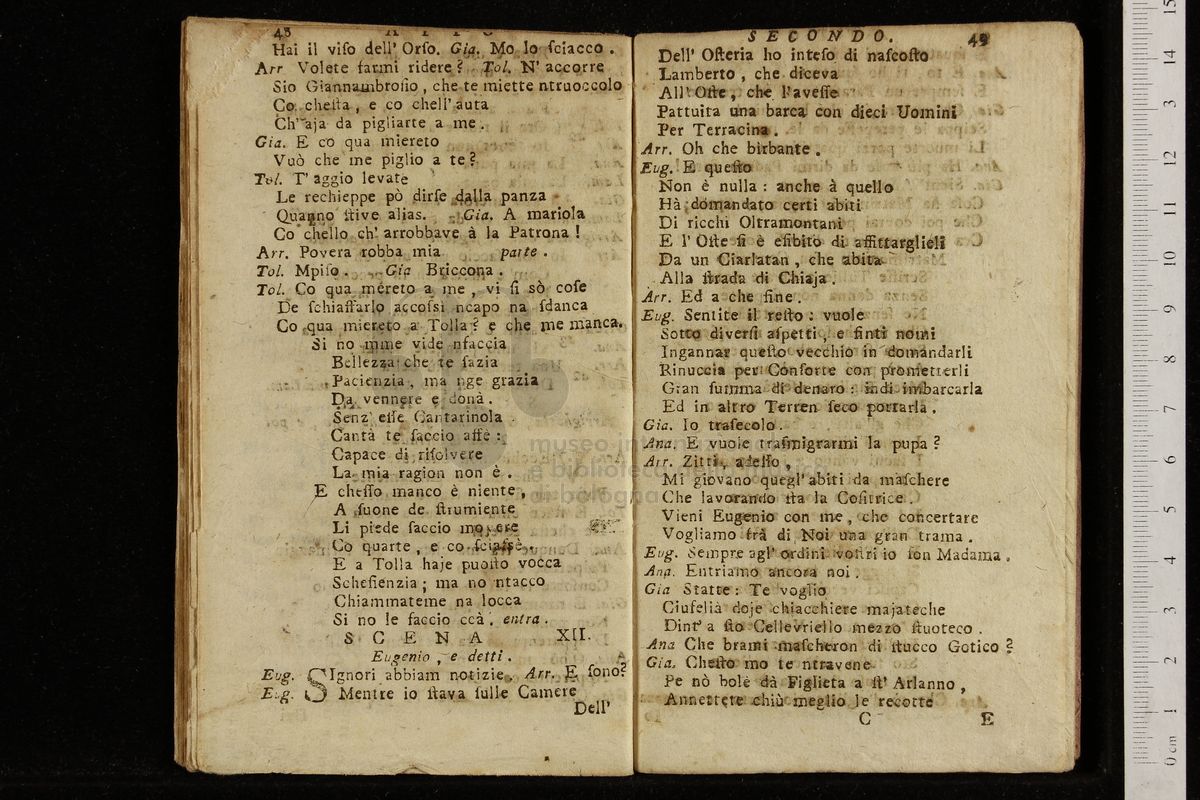 48 ATTO
Hai il viſo dell' Orſo. Gia. Mo lo ſciacco.
Arr Volete farmi ridere? Tol. N' accorre
Sio Giannambroſio, che te miette ntruoccolo
Co cheſta, e co chell' auta
Ch' aja da pigliarte a me.
Gia. E co qua miereto
Vuò che me piglio a te?
Tol. T' aggio levate
Le rechieppe pò dirſe dalla panza
Quanno ſtive alias. Gia. A mariola
Co chello ch' arrobbave à la Patrona!
Arr. Povera robba mia parte.
Tol. Mpiſo. Gia Briccona.
Tol. Co qua mereto a me, vi ſi sò coſe
De ſchiaffarlo accoſsì ncapo na ſdanca
Co qua miereto a Tolla? e che me manca.
Si no mme vide nfaccia
Bellezza che te ſazia
Pacienzia, ma nge grazia
Da vennere e donà.
Senz' eſſe Cantarinola
Cantà te faccio affè:
Capace di riſolvere
La mia ragion non è.
E cheſſo manco è niente,
A ſuone de ſtrumiente
Li piede faccio movere
Co quarte, e co ſciaſsè,
E a Tolla haje puoſto vocca
Scheſienzia; ma no ntacco
Chiammateme na locca
Si no le faccio ccà. entra.
SCENA XII.
Eugenio, e detti.
Eug. SIgnori abbiam notizie. Arr. E ſono?
Eug. Mentre io ſtava ſulle Camere
Dell'
SECONDO. 49
Dell' Oſteria ho inteſo di naſcoſto
Lamberto, che diceva
All' Oſte, che l'aveſſe
Pattuita una barca con dieci Uomini
Per Terracina.
Arr. Oh che birbante.
Eug. E queſto
Non è nulla: anche à quello
Hà domandato certi abiti
Di ricchi Oltramontani
E l' Oſte ſi è eſibito di affittarglieli
Da un Ciarlatan, che abita
Alla ſtrada di Chiaja.
Arr. Ed a che fine.
Eug. Sentite il reſto: vuole
Sotto diverſi aſpetti, e finti nomi
Ingannar queſto vecchio in domandarli
Rinuccia per Conſorte con prometterli
Gran ſumma di denaro: indi imbarcarla
Ed in altro Terren ſeco portarla.
Gia. Io traſecolo.
Ana. E vuole traſmigrarmi la pupa?
Arr. Zitti, adeſſo,
Mi giovano quegl' abiti da maſchere
Che lavorando ſta la Coſitrice.
Vieni Eugenio con me, che concertare
Vogliamo frà di Noi una gran trama.
Eug. Sempre agl' ordini voſtri io ſon Madama.
Ana. Entriamo ancora noi.
Gia Statte: Te voglio
Ciufelià doje chiacchiere majateche
Dint' a ſto Cellevriello mezzo ſtuoteco.
Ana Che brami maſcheron di ſtucco Gotico?
Gia. Cheſto mo te ntravene
Pe nò bolè dà Figlieta a ſt' Arlanno,
Annettete chiù meglio le recotte
C E